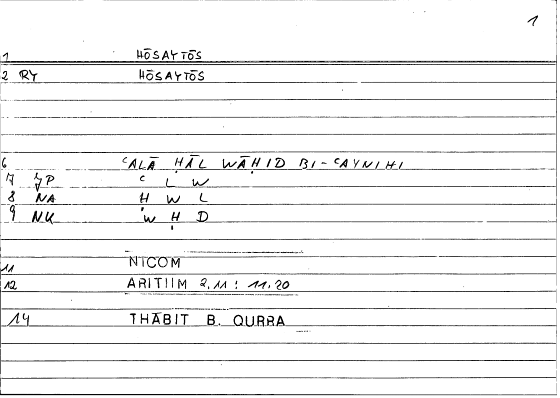 1
1 HŌSAYTŌS
2 RY HŌSAYTŌS
6 ʿALĀ ḤĀL WĀḤID BI-ʿAYNIHI
7 JP ʿ L W
8 NA Ḥ W L
9 NK W Ḥ D
11 NICOM
12 ARITIIM 2,11 : 11,20
14 THĀBIT B. QURRA